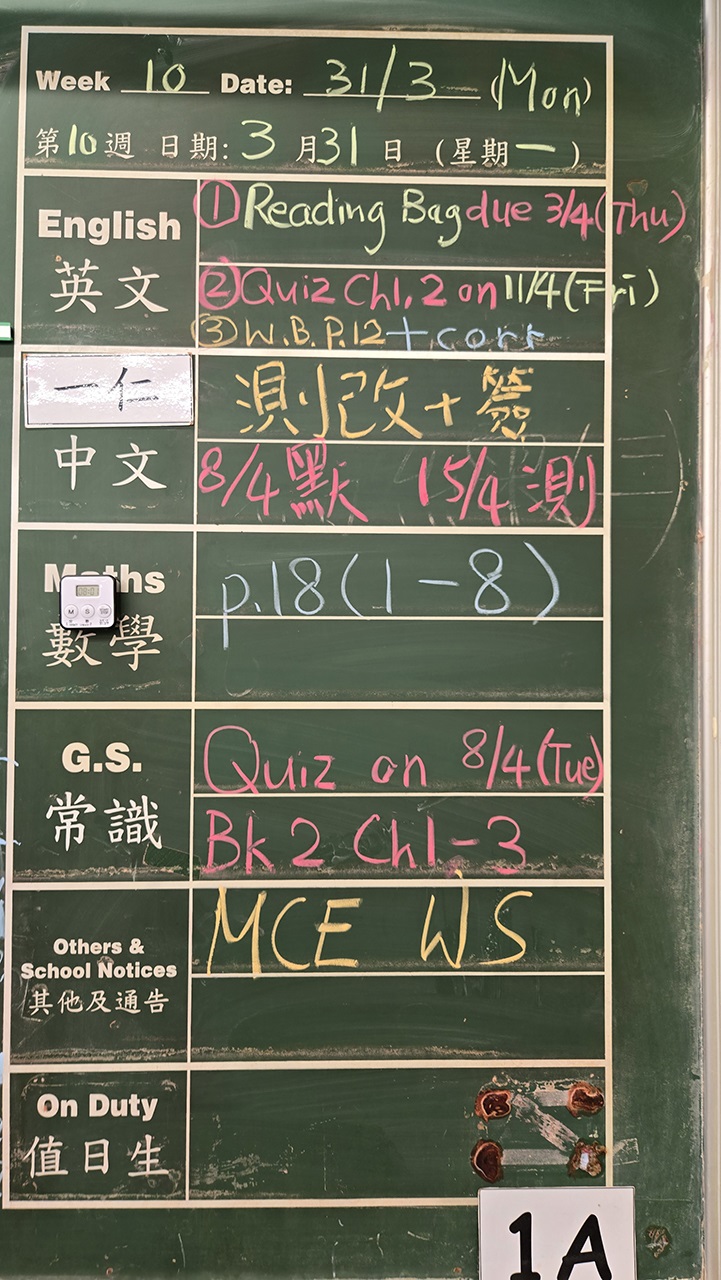 Week 10 Date: 31/3 (Mon)
第10週 日期: 3 月31 日 (星期一)
English
英文
① Reading Bag due 3/4(Thu)
② Quiz Ch1, 2 on 11/4(Fri)
③ W.B. P.12 + corr
一仁
中文
測改+簽
8/4默 15/4測
Maths
數學
p.18(1-8)
G.S.
常識
Quiz on 8/4(Tue)
Bk 2 Ch1-3
Others &
School Notices
其他及通告
MCE WS
On Duty
值日生
1A